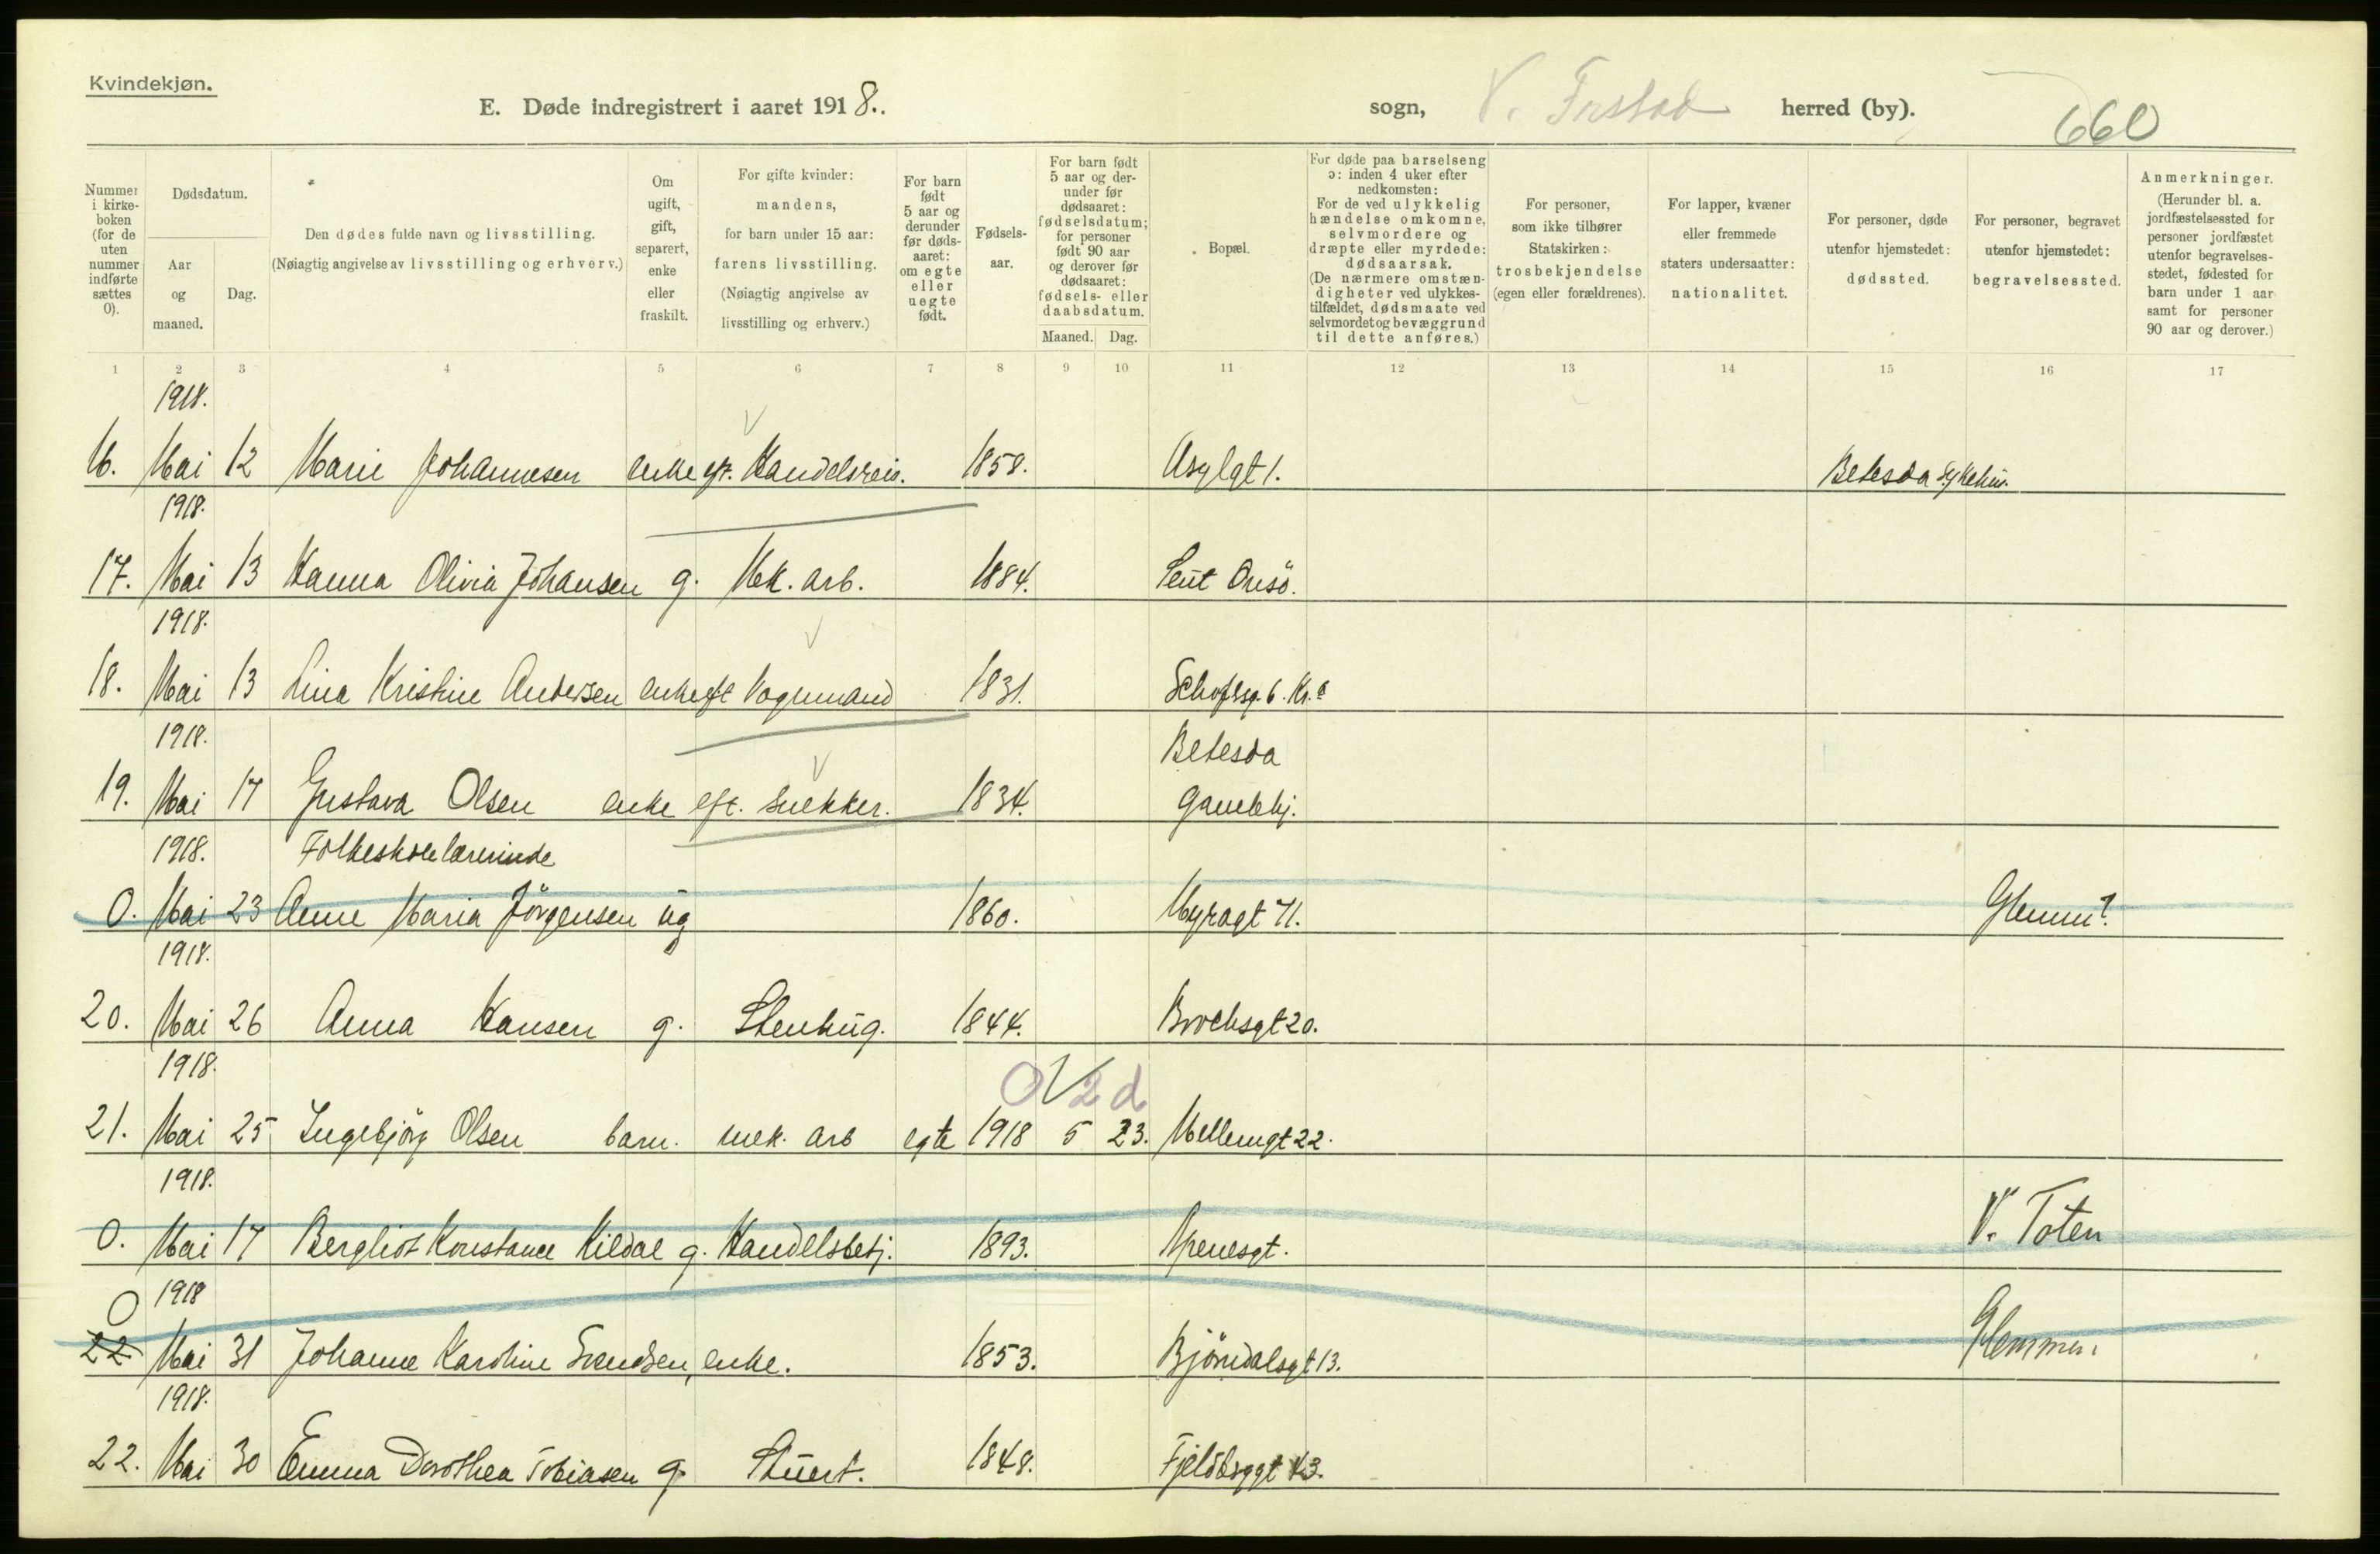 Kvindekjøn.
E. Døde indregistrert i aaret 1918. sogn, V. Frstad herred (by). 660
Nummer i kirkeboken (for de uten nummer indførte sættes 0).
Dødsdatum.
Aar og maaned.
Dag.
Den dødes fulde navn og livsstilling.
(Nøiagtig angivelse av livsstilling og erhverv.)
Om ugift, gift, separert, enke eller fraskilt.
For gifte kvinder: mandens, for barn under 15 aar: farens livsstilling. (Nøiagtig angivelse av livsstilling og erhverv.)
For barn født 5 aar og derunder før dødsaaret: om egte eller uegte født.
Fødselsaar.
For barn født 5 aar og derunder før dødsaaret: fødselsdatum; for personer født 90 aar og derover før dødsaaret: fødsels- eller daabsdatum.
Maaned. Dag.
Bopæl.
For døde paa barselseng ɔ: inden 4 uker efter nedkomsten: For de ved ulykkelig hændelse omkomne, selvmordere og dræpte eller myrdede: dødsaarsak. (De nærmere omstændigheter ved ulykkestilfældet, dødsmaate ved selvmordet og bevæggrund til dette anføres.)
For personer, som ikke tilhører Statskirken: trosbekjendelse (egen eller forældrenes).
For lapper, kvæner eller fremmede staters undersaatter: nationalitet.
For personer, døde utenfor hjemstedet: dødssted.
For personer, begravet utenfor hjemstedet: begravelsessted.
Anmerkninger. (Herunder bl. a. jordfæstelsessted for personer jordfæstet utenfor begravelsesstedet, fødested for barn under 1 aar samt for personer 90 aar og derover.)
1 2 3 4 5 6 7 8 9 10 11 12 13 14 15 16 17
1918.
16. Mai 12 Marie Johannesen enke eft. Handelsreis. 1858. Asylgt 1. Betesda Sykehus.
1918.
17. Mai 13 Hanna Olivia Johansen g. Mek. arb. 1884. Leut Onsö.
1918.
18. Mai 13 Lina Kristine Andersen enke eft Vognmand 1831. 6. Kr.a
1918. Betesda
19. Mai 17 Gustava Olsen enke eft. Snekker. 1834. Gamlehj.
1918. Folkeskolelærerinde
0. Mai 23 Anne Maria Jörgensen ug 1860. Myragt 71. Glemm
1918.
20. Mai 26 Anna Hansen g. Stenhug. 1844. Brochsgt 20.
1918. 0 2 d
21. Mai 25 Ingebjörg Olsen barn. mek. arb egte 1918 5 23. Mellemgt 22.
1918.
0. Mai 17 Bergliot Konstance Kildal g. Handelsbetj. 1893. Apenesgt. V. Toten
0 1918
22 Mai 31 Johanne Karoline Svendsen, enke. 1853. Bjöndalsgt 13. Glemmen
1918.
22. Mai 30 Emma Dorothea Tobiasen g. Stuert. 1848. Fjeldbyggt 43.